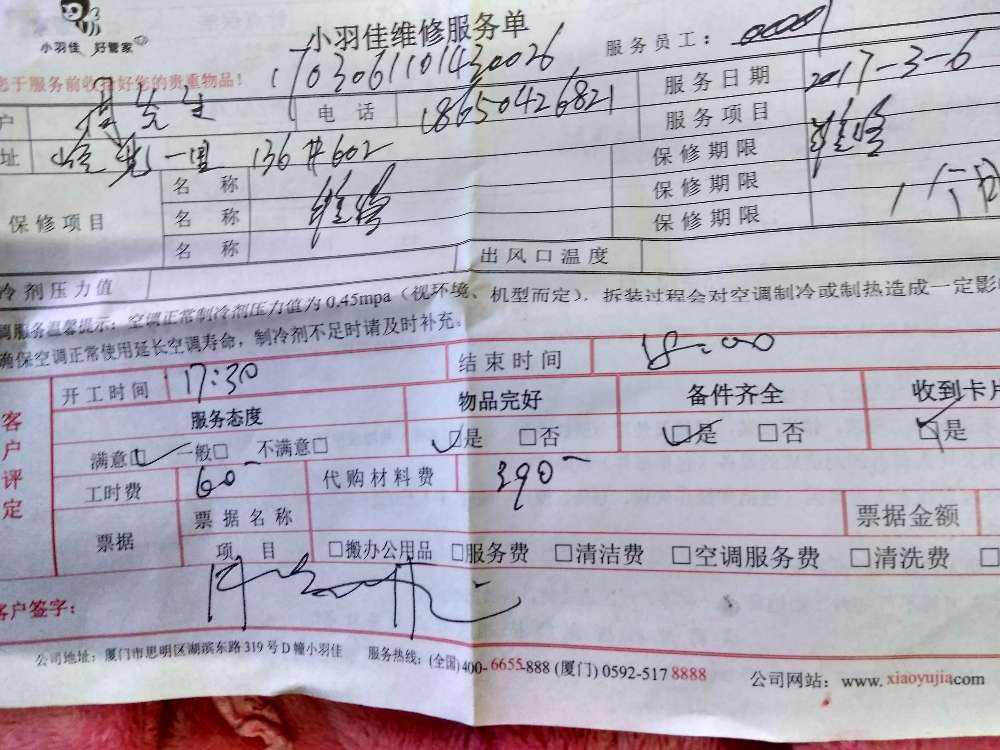 小羽佳 好管家
小羽佳维修服务单
服务员工：
您于服务前收好您的贵重物品！ 1703061101430026
服务日期 2017-3-6
户 先生 电话 18650426821
服务项目 维修
址 一里 136#602
保修期限
保修项目 名称 维修 保修期限
名称 保修期限
名称
冷剂压力值 出风口温度
调服务温馨提示：空调正常制冷剂压力值为 0.45mpa（视环境、机型而定）. 拆装过程会对空调制冷或制热造成一定影
确保空调正常使用延长空调寿命，制冷剂不足时请及时补充。
客户评定
开工时间 17:30 结束时间 18:00
服务态度 物品完好 备件齐全 收到卡片
满意□ 一般□ 不满意□ □是 □否 □是 □否 □是
工时费 60 代购材料费 390
票据 票据名称 票据金额
项目 □搬办公用品 □服务费 □清洁费 □空调服务费 □清洗费 □
客户签字：
公司地址：厦门市思明区湖滨东路 319 号 D 幢小羽佳 服务热线：(全国)400-6655-888 (厦门) 0592-517 8888 公司网站：www.xiaoyujia.com